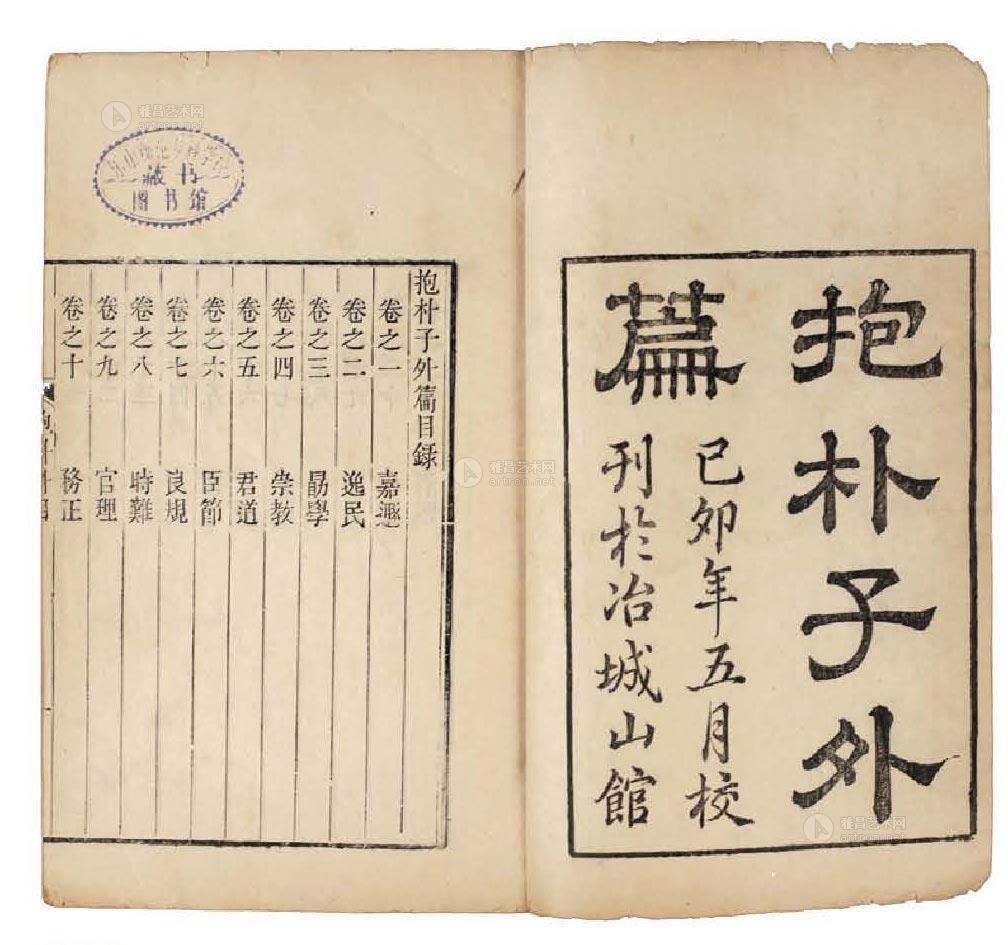 抱朴子外
篇
已夘年五月校
刊於冶城山館
抱朴子外篇目録
卷之一 嘉遯
卷之二 逸民
卷之三 勗學
卷之四 崇教
卷之五 君道
卷之六 臣節
卷之七 良規
卷之八 時難
卷之九 官理
卷之十 務正
藏书
圖书馆
雅昌艺术网
artron.net
雅昌艺术网
artron.net
雅昌艺术网
artron.net